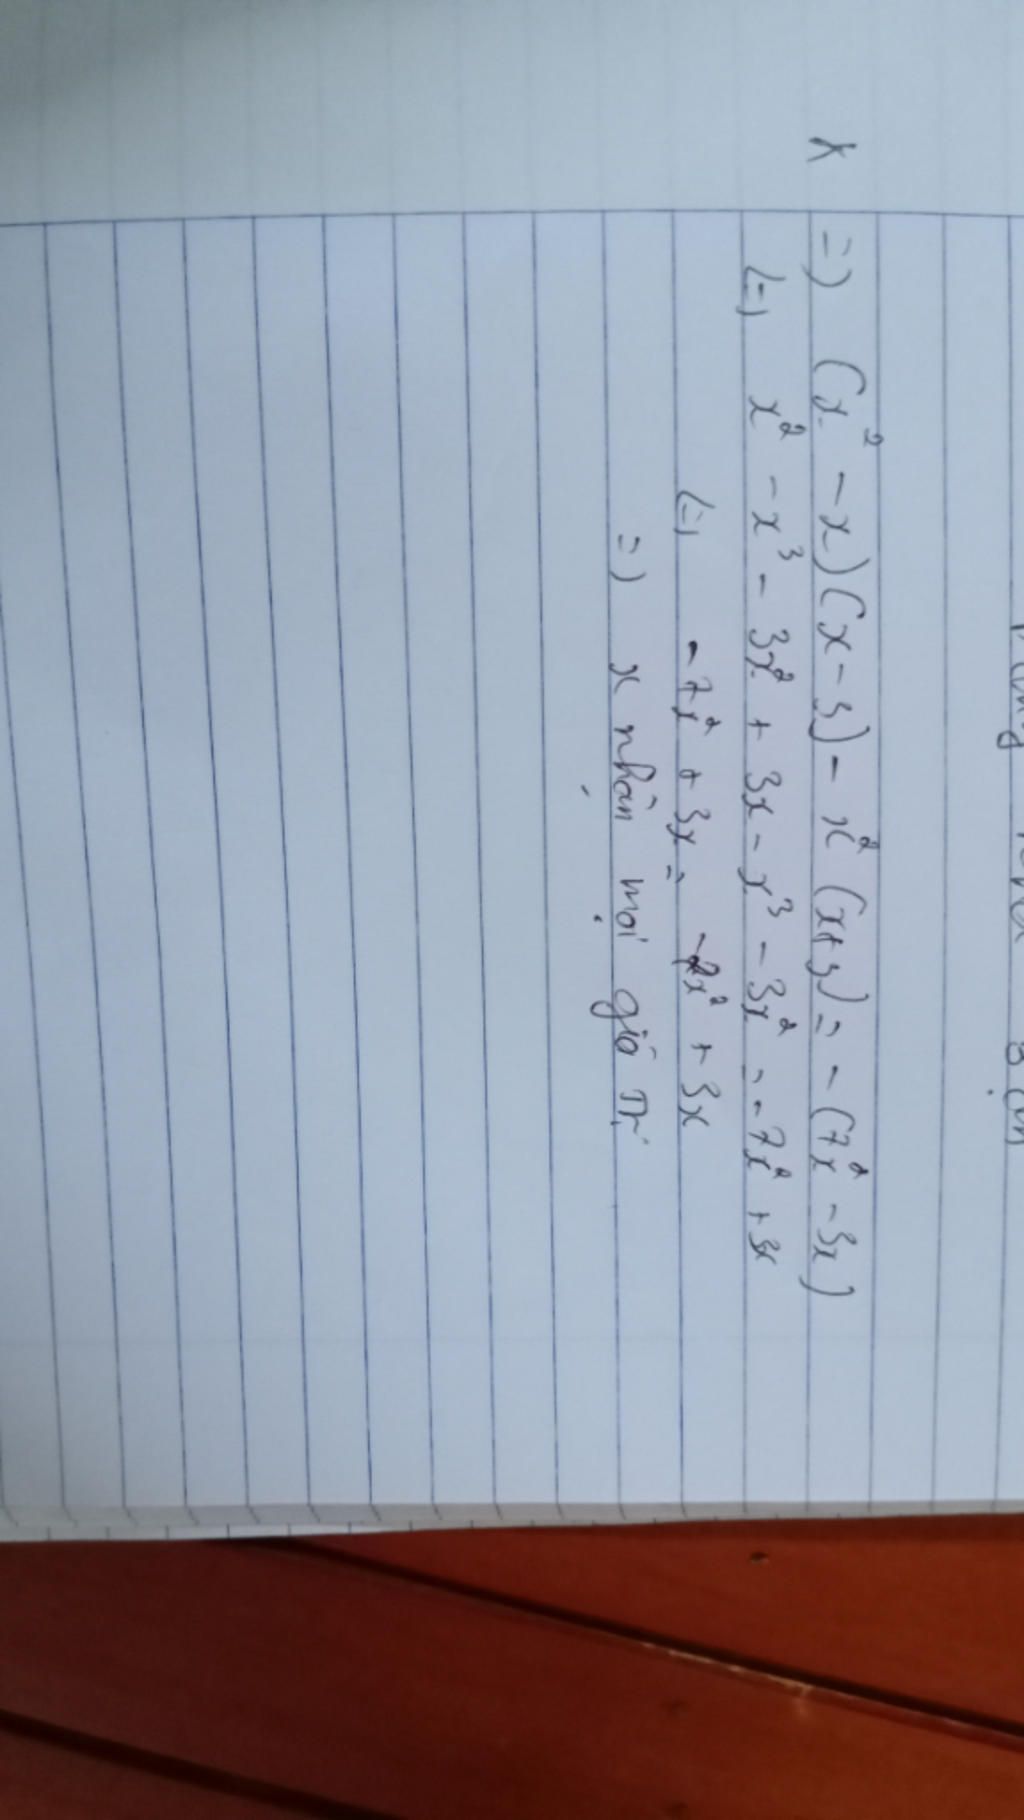 =) (x² - x)(x - 3) - x² (x+3) = - (7x² - 3x)
(=) x² - x³ - 3x² + 3x - x³ - 3x² = -7x² + 3x
(=) -7x² + 3x = -7x² + 3x
=) x nhận mọi giá trị